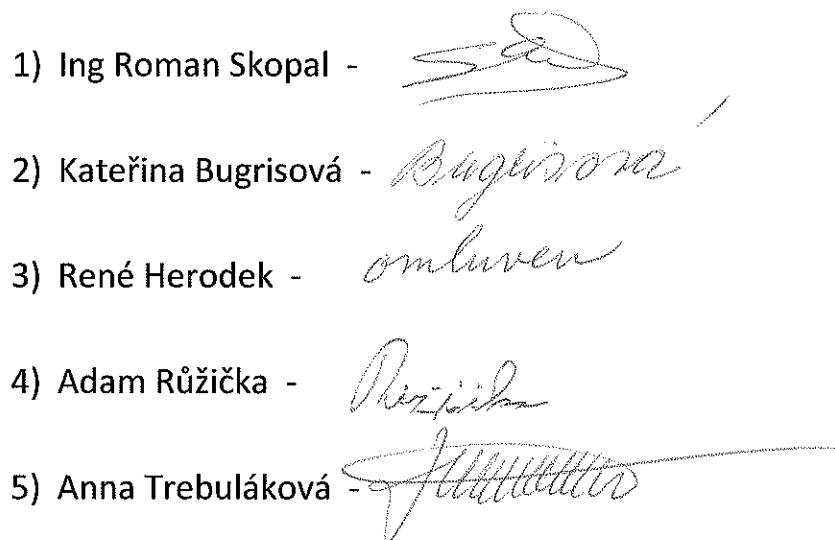 1) Ing Roman Skopal -
2) Kateřina Bugrisová - Bugrisová
3) René Herodek - omluven
4) Adam Růžička - Růžička
5) Anna Trebuláková -